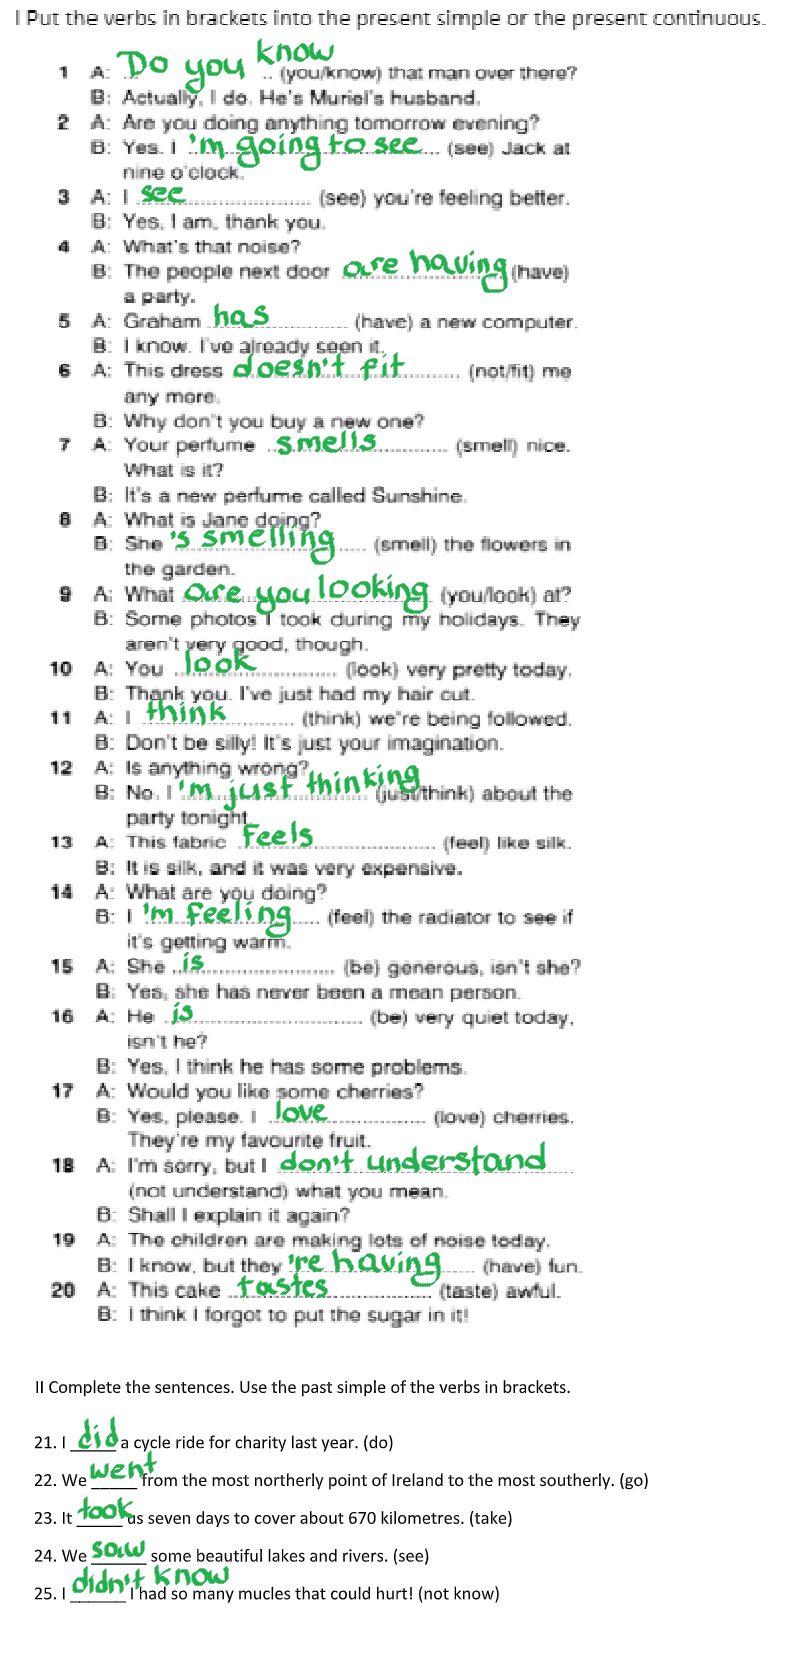 I Put the verbs in brackets into the present simple or the present continuous.
1 A: Do you know .. (you/know) that man over there?
B: Actually, I do. He's Muriel's husband.
2 A: Are you doing anything tomorrow evening?
B: Yes. I 'm going to see ... (see) Jack at
nine o'clock.
3 A: I see ... (see) you're feeling better.
B: Yes, I am, thank you.
4 A: What's that noise?
B: The people next door are having (have)
a party.
5 A: Graham has ... (have) a new computer.
B: I know. I've already seen it.
6 A: This dress doesn't fit ... (not/fit) me
any more.
B: Why don't you buy a new one?
7 A: Your perfume smells ... (smell) nice.
What is it?
B: It's a new perfume called Sunshine.
8 A: What is Jane doing?
B: She 's smelling ... (smell) the flowers in
the garden.
9 A: What are you looking (you/look) at?
B: Some photos I took during my holidays. They
aren't very good, though.
10 A: You look ... (look) very pretty today.
B: Thank you. I've just had my hair cut.
11 A: I think ... (think) we're being followed.
B: Don't be silly! It's just your imagination.
12 A: Is anything wrong?
B: No. I 'm just thinking (just/think) about the
party tonight.
13 A: This fabric feels ... (feel) like silk.
B: It is silk, and it was very expensive.
14 A: What are you doing?
B: I 'm feeling ... (feel) the radiator to see if
it's getting warm.
15 A: She is ... (be) generous, isn't she?
B: Yes, she has never been a mean person.
16 A: He is ... (be) very quiet today,
isn't he?
B: Yes, I think he has some problems.
17 A: Would you like some cherries?
B: Yes, please. I love ... (love) cherries.
They're my favourite fruit.
18 A: I'm sorry, but I don't understand
(not understand) what you mean.
B: Shall I explain it again?
19 A: The children are making lots of noise today.
B: I know, but they 're having ... (have) fun.
20 A: This cake tastes ... (taste) awful.
B: I think I forgot to put the sugar in it!
II Complete the sentences. Use the past simple of the verbs in brackets.
21. I did a cycle ride for charity last year. (do)
22. We went from the most northerly point of Ireland to the most southerly. (go)
23. It took us seven days to cover about 670 kilometres. (take)
24. We saw some beautiful lakes and rivers. (see)
25. I didn't know I had so many mucles that could hurt! (not know)